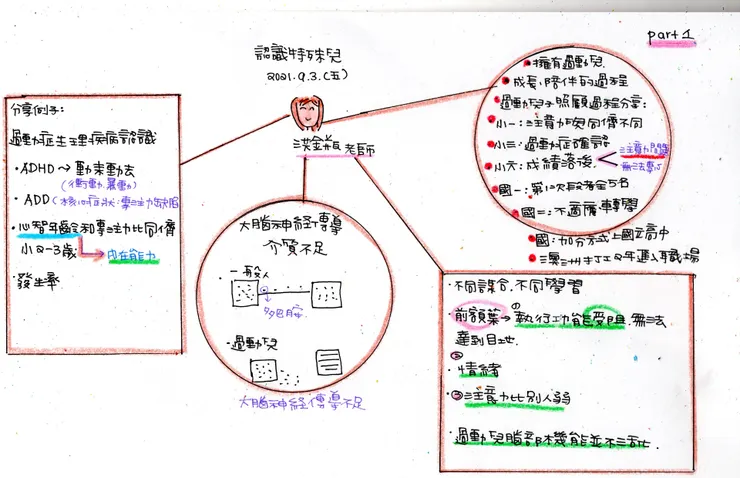 part 1
認識特殊兒
2021.9.3.(五)
洪金 老師
分享例子:
過動症生理疾病認識
·ADHD→動來動去
(衝動.暴動)
·ADD(核心症狀:專注力缺陷)
·心智年齡和專注力比同儕
小2-3歲→內在能力
·發生率
大腦神經傳導
介質不足
·一般人
多巴胺
·過動兒
大腦神經傳導不足
·擁有過動兒.
·成長.陪伴的過程
·過動兒子照顧過程分享:
·小一:注意力與同儕不同
·小三:過動症確認
·小六:成績落後
注意力問題
無法專心
·國一:第1次段考全5名
·國二:不適應.轉學
·國:加分方式上國立高中
·澳洲打工2年進入職場
·不同課合.不同學習
·前額葉→①執行功能受阻.無法
達到目地.
②情緒
·③注意力比別人弱
·過動兒腦部機能並不活化.